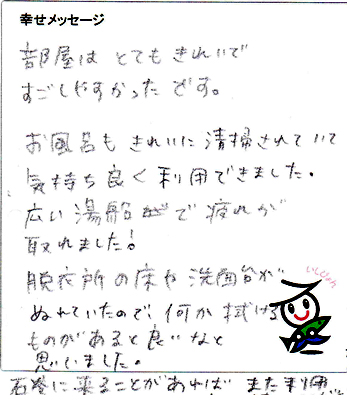 幸せメッセージ
部屋は とても きれいで
すごしやすかった です。
お風呂も きれいに 清掃されていて
気持ち良く 利用できました。
広い 湯船で 疲れが
取れました!
脱衣所の床や 洗面台が
ぬれていたので、何か 拭ける
ものがあると良いなと
思いました。
石登に来ることがあれば また利用